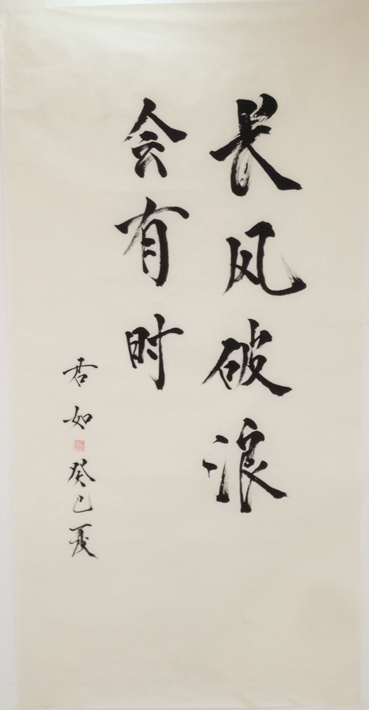 长风破浪
会有时
君如
癸巳夏